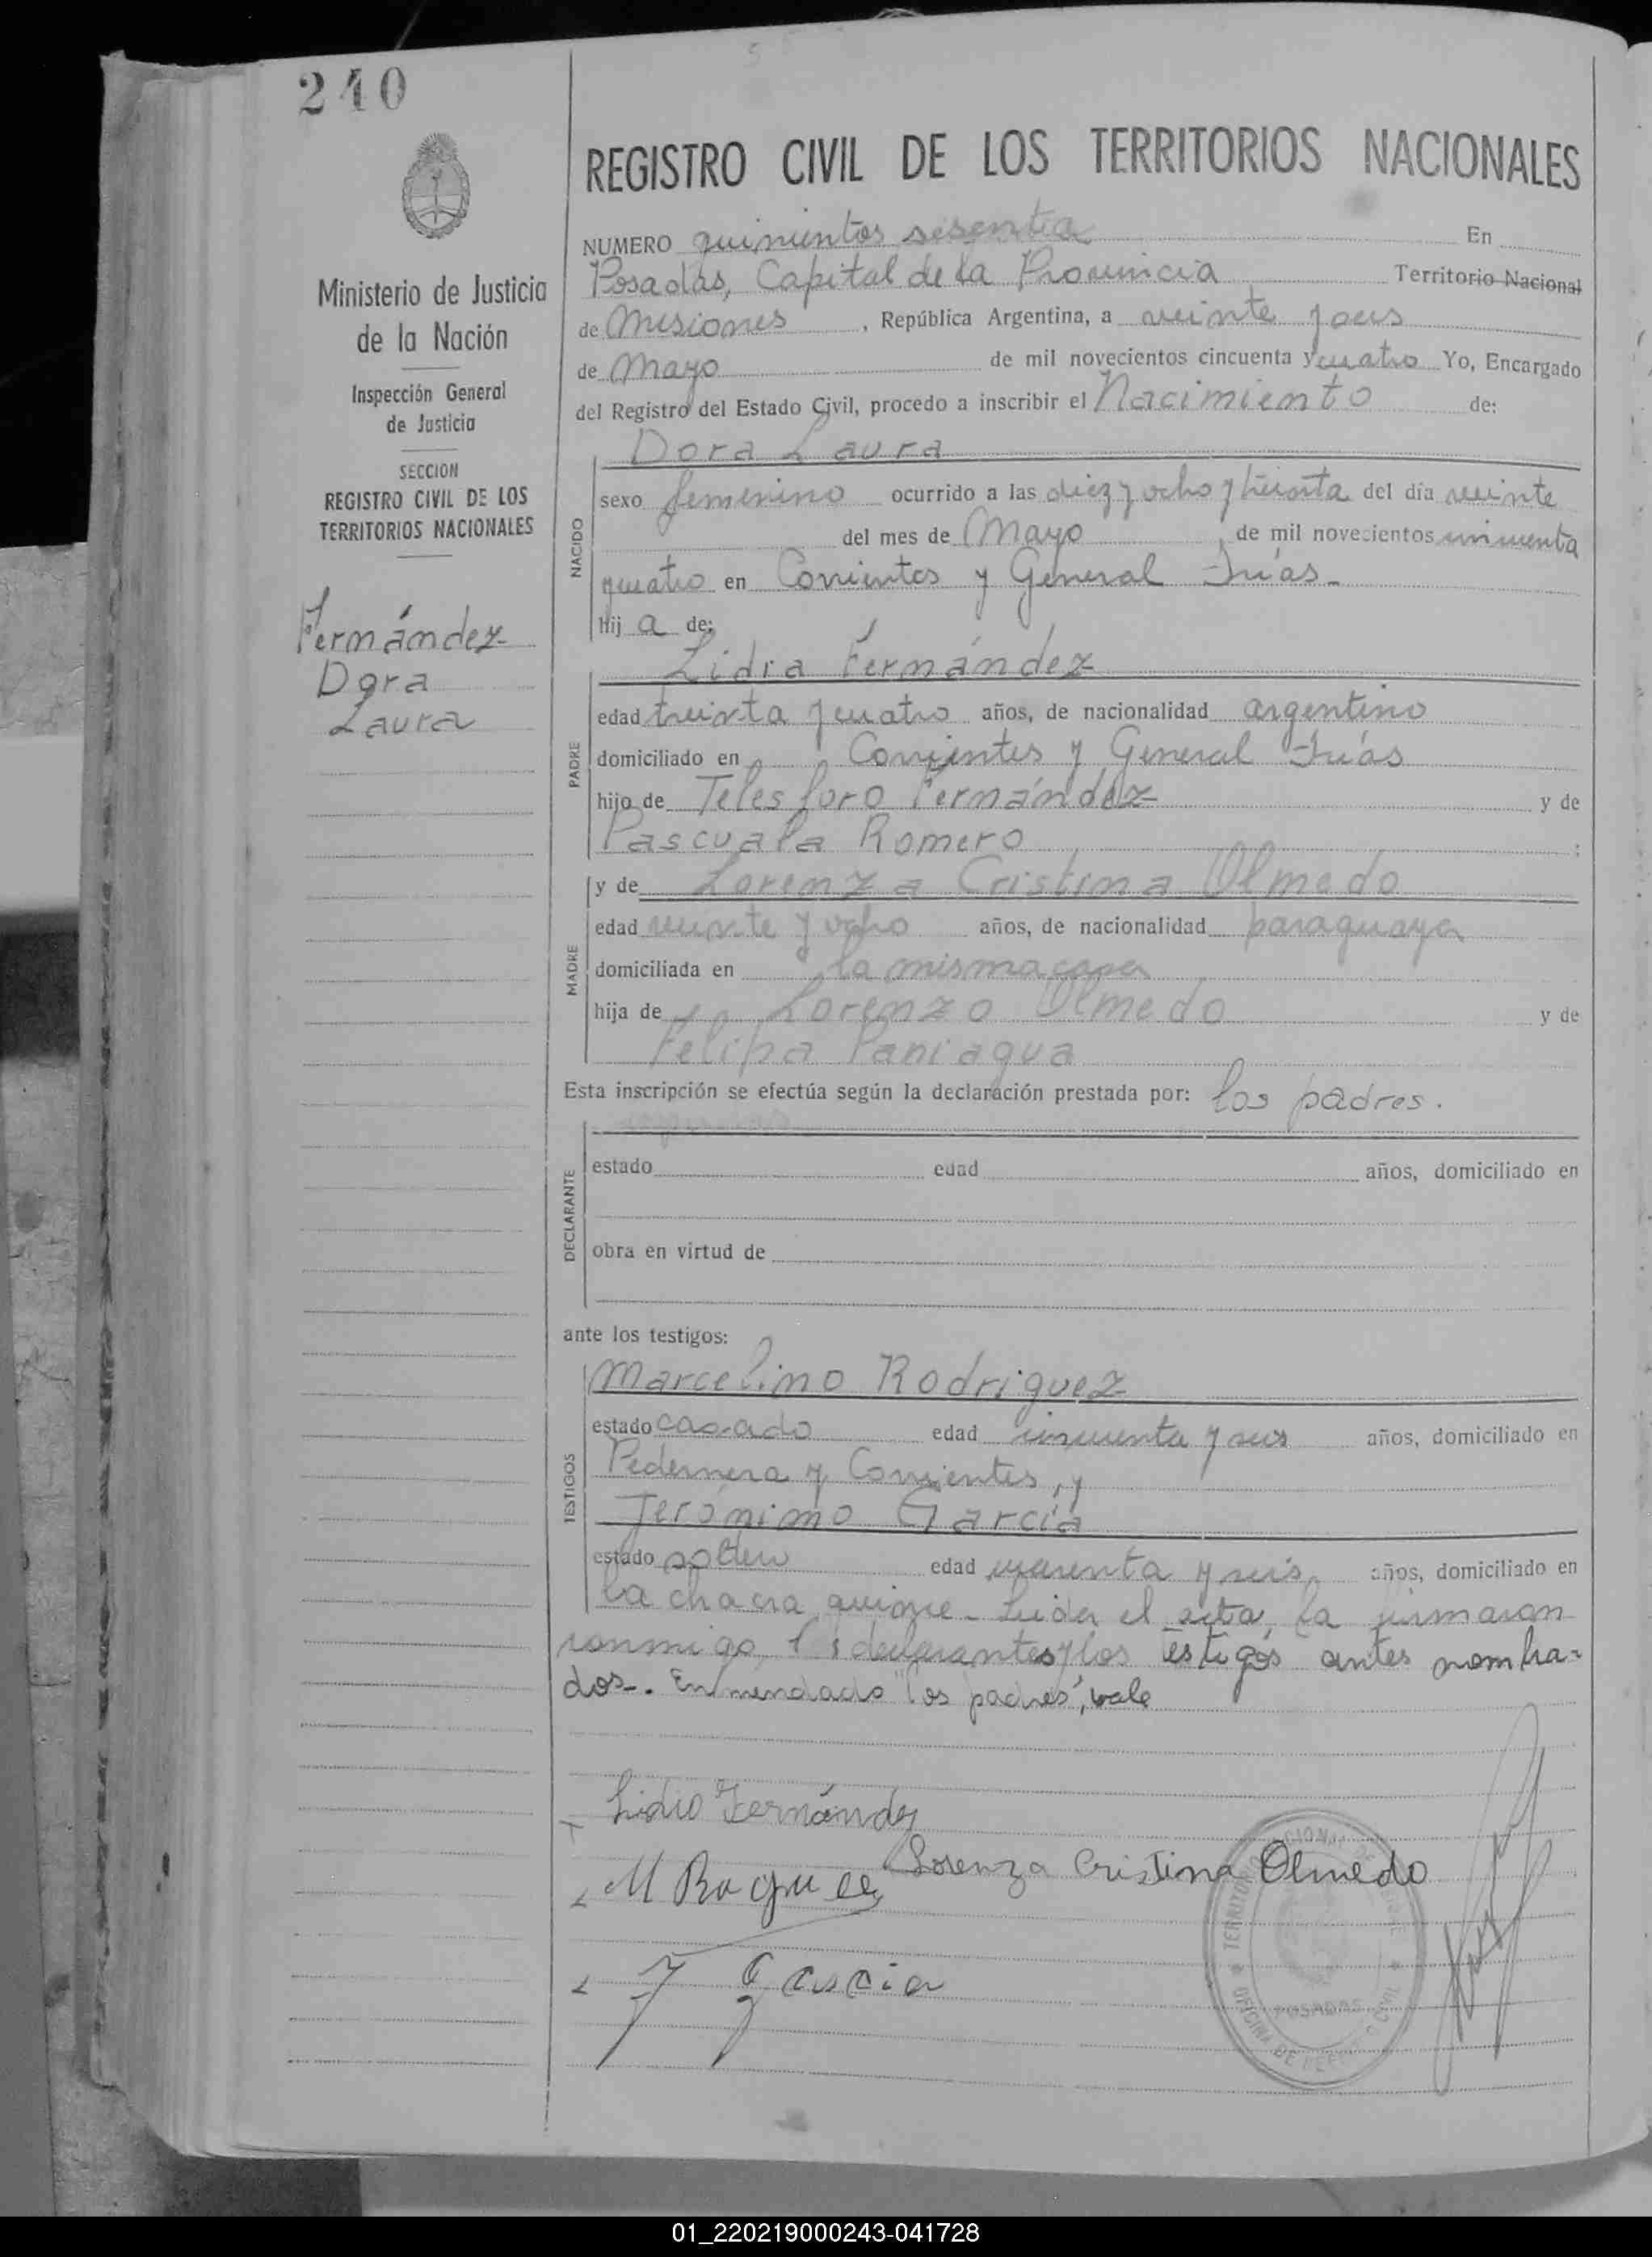 240
Ministerio de Justicia
de la Nación
Inspección General
de Justicia
SECCION
REGISTRO CIVIL DE LOS
TERRITORIOS NACIONALES
Fernández
Dora
Laura
REGISTRO CIVIL DE LOS TERRITORIOS NACIONALES
NUMERO quinientos sesenta En
Posadas, Capital de la Provincia Territorio Nacional
de Misiones, República Argentina, a veinte y seis
de Mayo de mil novecientos cincuenta y cuatro Yo, Encargado
del Registro del Estado Civil, procedo a inscribir el Nacimiento de:
Dora Laura
NACIDO
sexo femenino ocurrido a las diez y ocho y treinta del día veinte
del mes de Mayo, de mil novecientos cincuenta
y cuatro en Corrientes y General Frías-
Hij a de:
Lidio Fernández
PADRE
edad treinta y cuatro años, de nacionalidad argentino
domiciliado en Corrientes y General Frías
hijo de Telesforo Fernández y de
Pascuala Romero;
y de Lorenza Cristina Olmedo
MADRE
edad veinte y ocho años, de nacionalidad paraguaya
domiciliada en la misma casa
hija de Lorenzo Olmedo y de
Felipa Paniagua
Esta inscripción se efectúa según la declaración prestada por: los padres.
DECLARANTE
estado edad años, domiciliado en
obra en virtud de
ante los testigos:
TESTIGOS
Marcelino Rodriguez
estado casado edad cincuenta y seis años, domiciliado en
Pedernera y Corrientes, y
Jerónimo García
estado soltero edad cuarenta y seis años, domiciliado en
la chacra quince- Leida el acta, la firmaron
conmigo, los declarantes y los testigos antes nombra-
dos-. Enmendado "los padres", vale
Lidio Fernández
Lorenza Cristina Olmedo
J García
TERRITORIO
POSADAS
OFICINA DE CIVIL
01_220219000243-041728